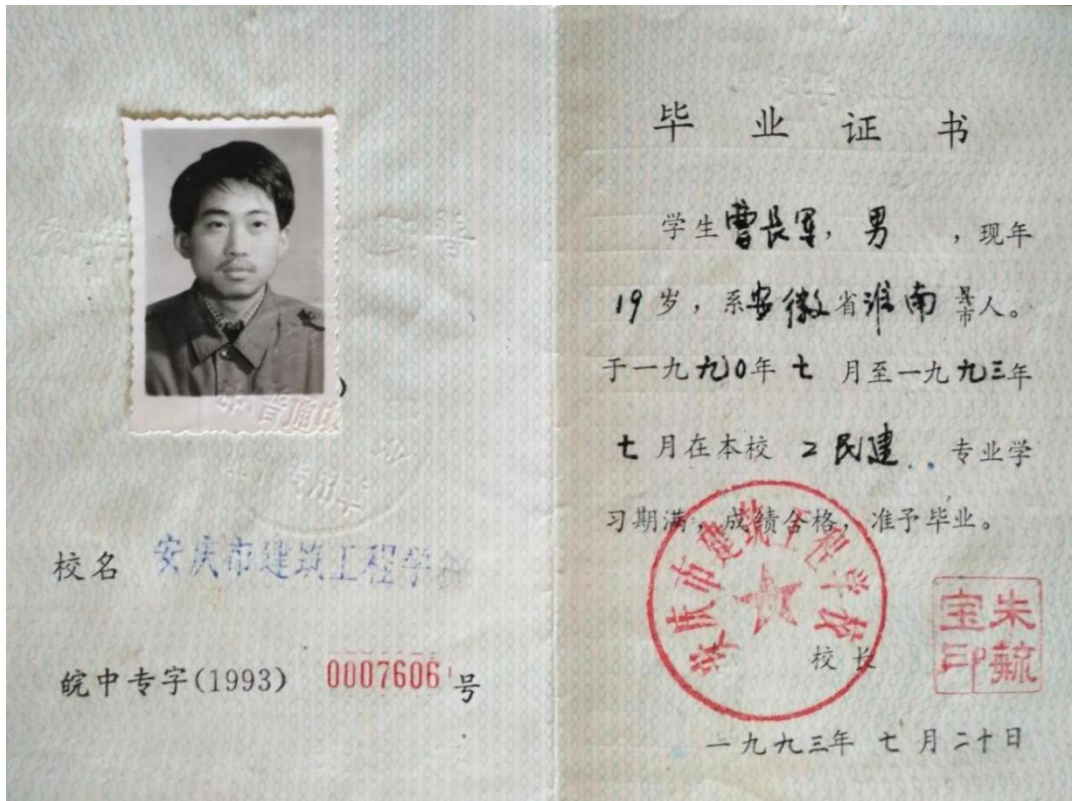 校名 安庆市建筑工程学校
皖中专字(1993) 0007606 号
毕业证书
学生曹长军,男 ,现年
19岁,系安徽省淮南县市人。
于一九九〇年七月至一九九三年
七月在本校 工民建 专业学
习期满,成绩合格,准予毕业。
安庆市建筑工程学校
校长
朱毓宝印
一九九三年七月二十日